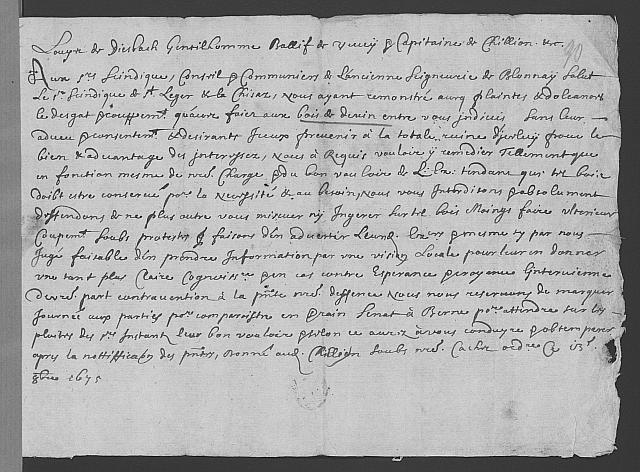 Louys de Diesbach Gentilhomme Ballif de Vevey & Capitaine de Chillion. &c.
Aux Srs Scindique, Conseil & Communiers de L'ancienne Seigneurie de Blonnay Salut
Le Sr Scindique de St Leger & La Chiesaz, Nous ayant remonstré avec plaintes & doleances
le desgat que aucuns faire aux bois de devin entre vous indivis, Sans leur
adveu & consentemt & desirants Iceux prevenir à la totale ruine d'Icelluy pour le
bien & advantage des interesses, Nous à Requis vouloir y remedier Tellement que
en fonction mesme de nre Charge & du bon vouloir de L: Ex: tendant que tel bois
doibt estre conservé pour la Necessité & au besoin, Nous vous Interditons & absolument
deffendons de ne plus outre vous mesuer ny Ingerer sur tel bois Moings faire ulterieur
Coupemt Soubs proteste faisons d'en advertir Leurs Exces & mesme ty par nous
Jugé faisable d'en prendre Information par une vision Locale pour leur en donner
une tant plus Claire & en cas contre Esperance & croyance Intervienne
de vre part contravention à la pnte nre deffence Nous nous reservons de marquer
Journee aux parties pour comparoistre en Senat à Berne pour attendre sur les
plaites des Instants leur bon vouloir & selon ce aurez à vous conduire
apres la nottification des pntes, Donné aud. Chillion Soubs nre Cachet ordre Ce 13e
8bre 1675